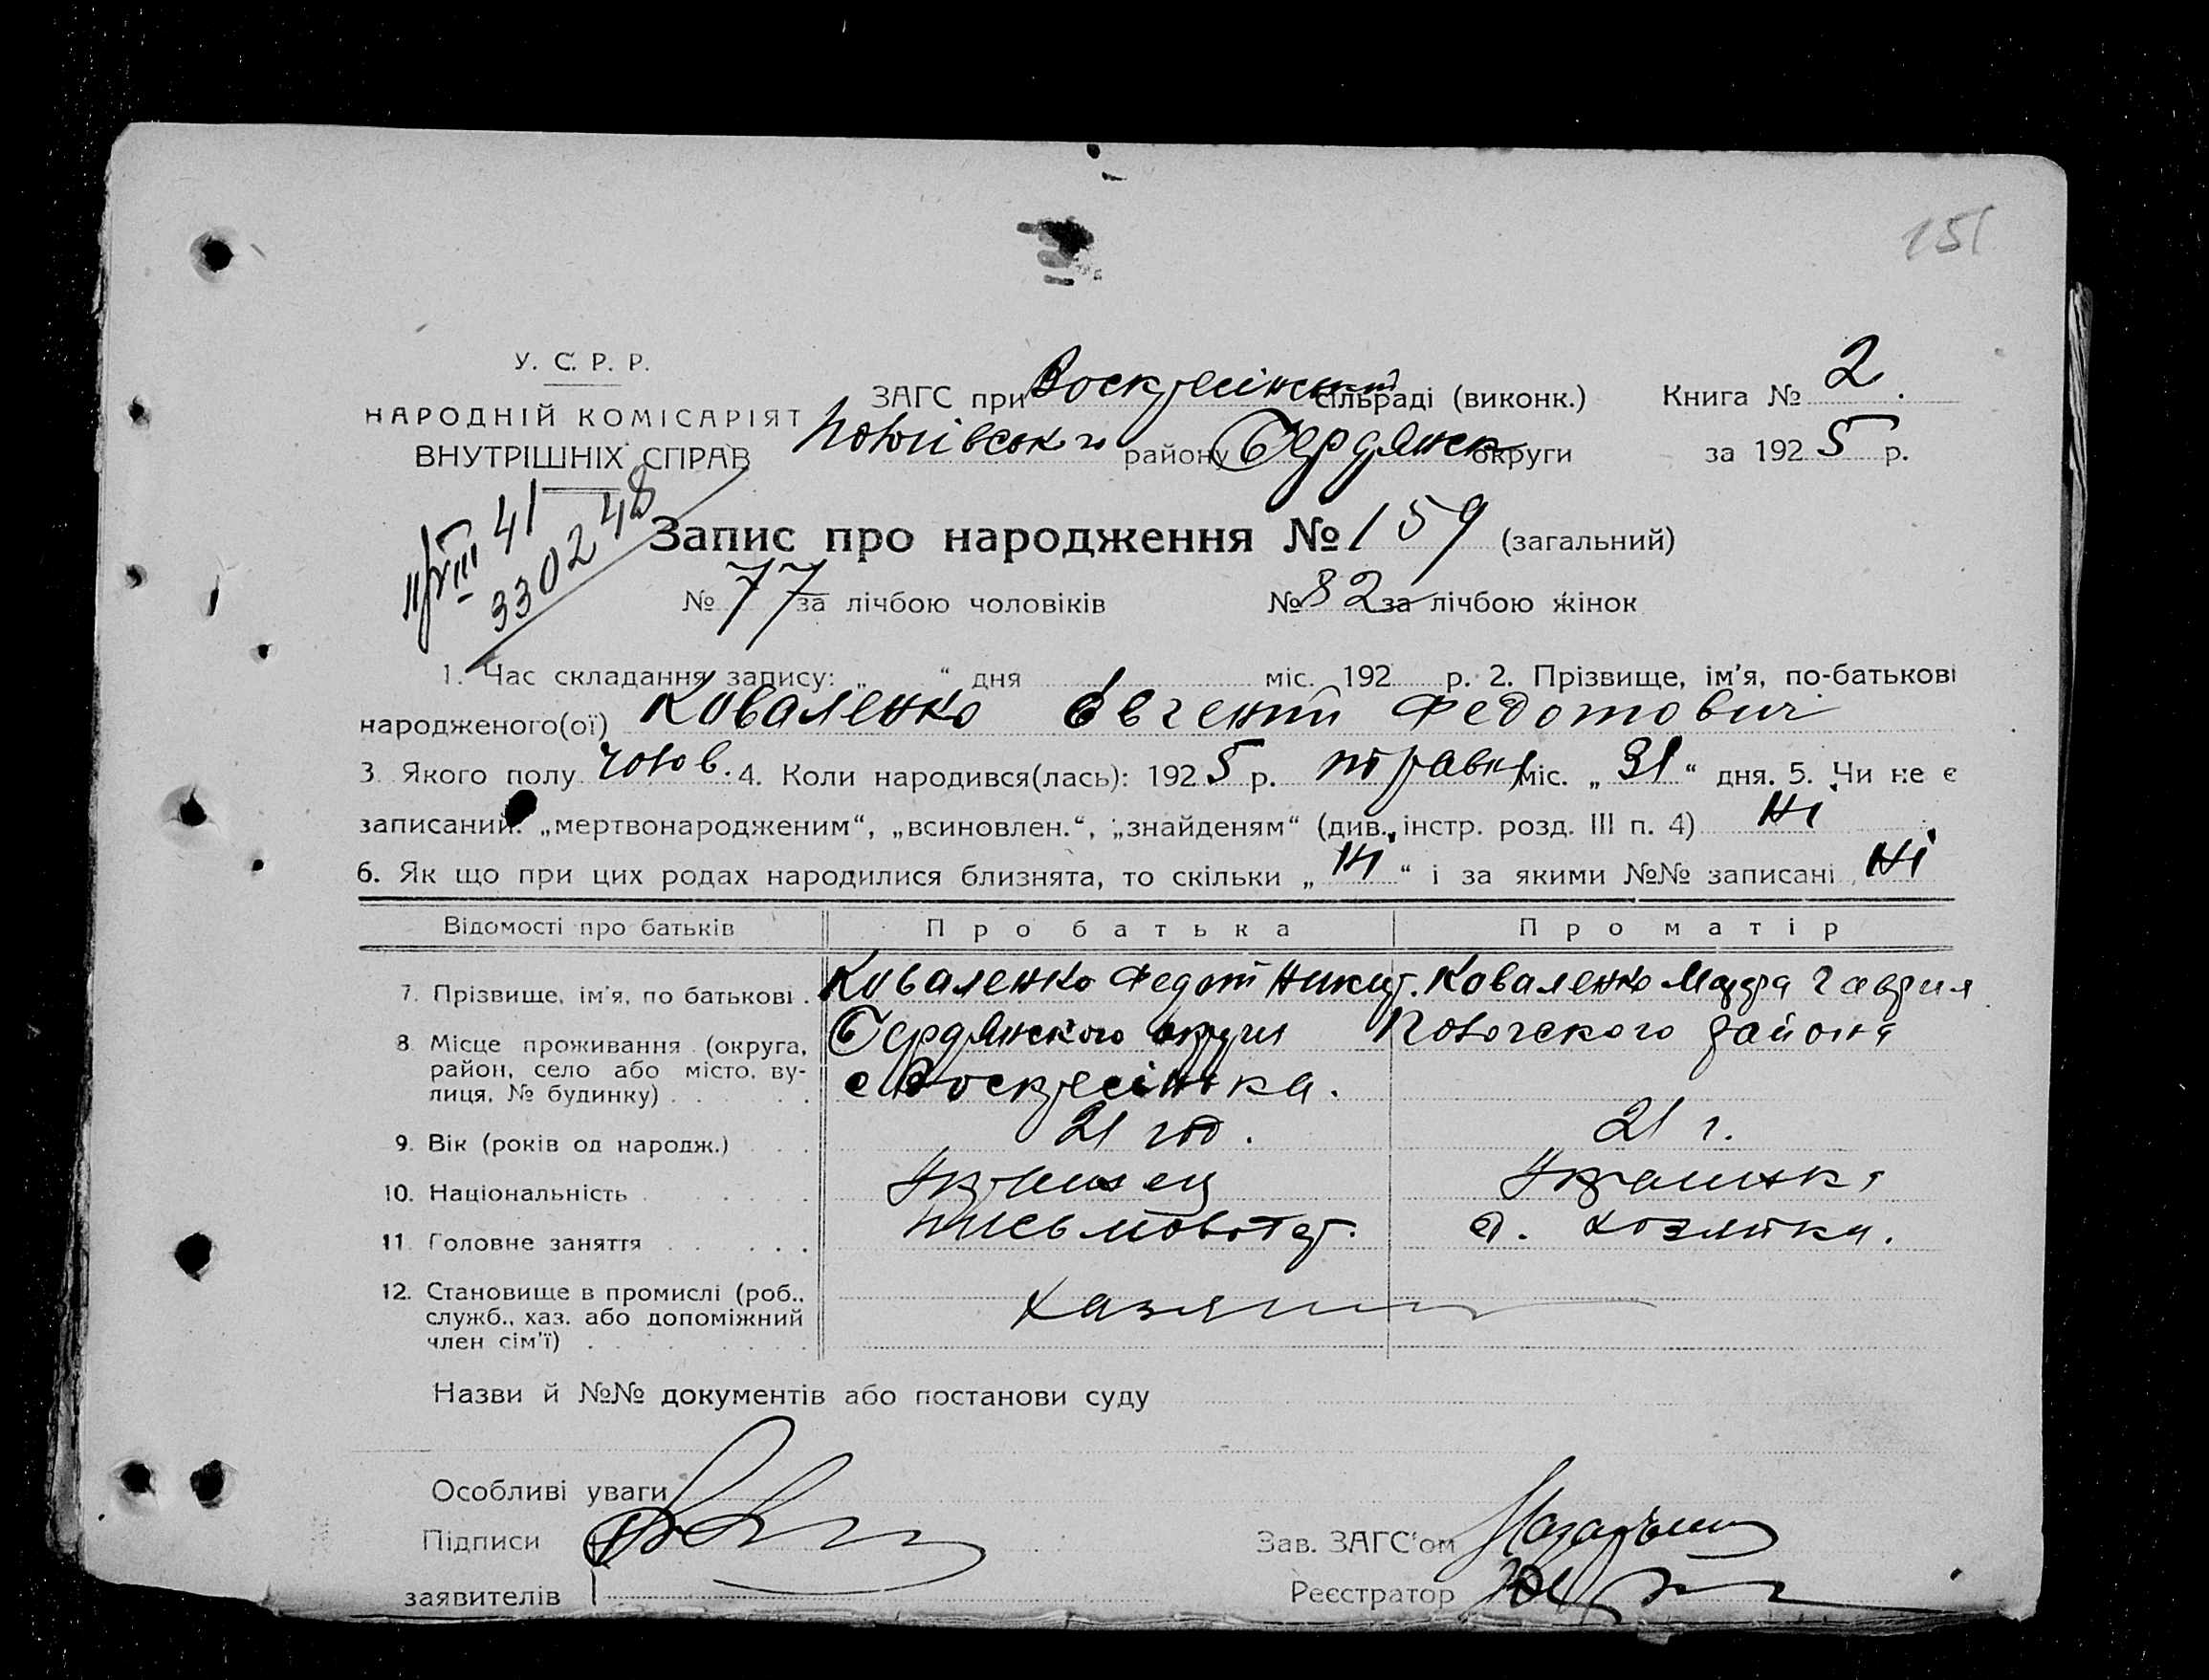 151
У. С. Р. Р.
НАРОДНІЙ КОМІСАРІЯТ
ВНУТРІШНІХ СПРАВ
ЗАГС при Воскресінській сільраді (виконк.)
району Бердянск округи
Книга № 2.
за 1925 р.
11/VIII 41
3302 48
Запис про народження № 159 (загальний)
№ 77 за лічбою чоловіків № 82 за лічбою жінок
1. Час складання запису: „ “ дня міс. 192 р. 2. Прізвище, ім'я, по-батькові
народженого(ої) Коваленко Євгений Федотович
3. Якого полу чолов. 4. Коли народився(лась): 1925 р. травня міс. „31“ дня. 5. Чи не є
записаний: „мертвонародженим“, „всиновлен.“, „знайденям“ (див. інстр. розд. III п. 4) Ні
6. Як що при цих родах народилися близнята, то скільки „Ні“ і за якими №№ записані Ні
Відомості про батьків Про батька Про матір
7. Прізвище, ім'я, по батькові . Коваленко Федот Никит. Коваленко Мавра Гаврил
8. Місце проживання (округа, Бердянского округи района
район, село або місто, ву- с Воскресінка.
лиця, № будинку) . . . . . .
9. Вік (років од народж.) . . . 21 год. 21 г.
10. Національність . . . . . . . Украинец Украинка
11. Головне заняття . . . . . . письмовот. д. хозяйка.
12. Становище в промислі (роб.,
служб., хаз. або допоміжний
член сім'ї) . . . . . . . .
Назви й №№ документів або постанови суду
Особливі уваги
Підписи
заявителів
Зав. ЗАГС'ом
Реєстратор